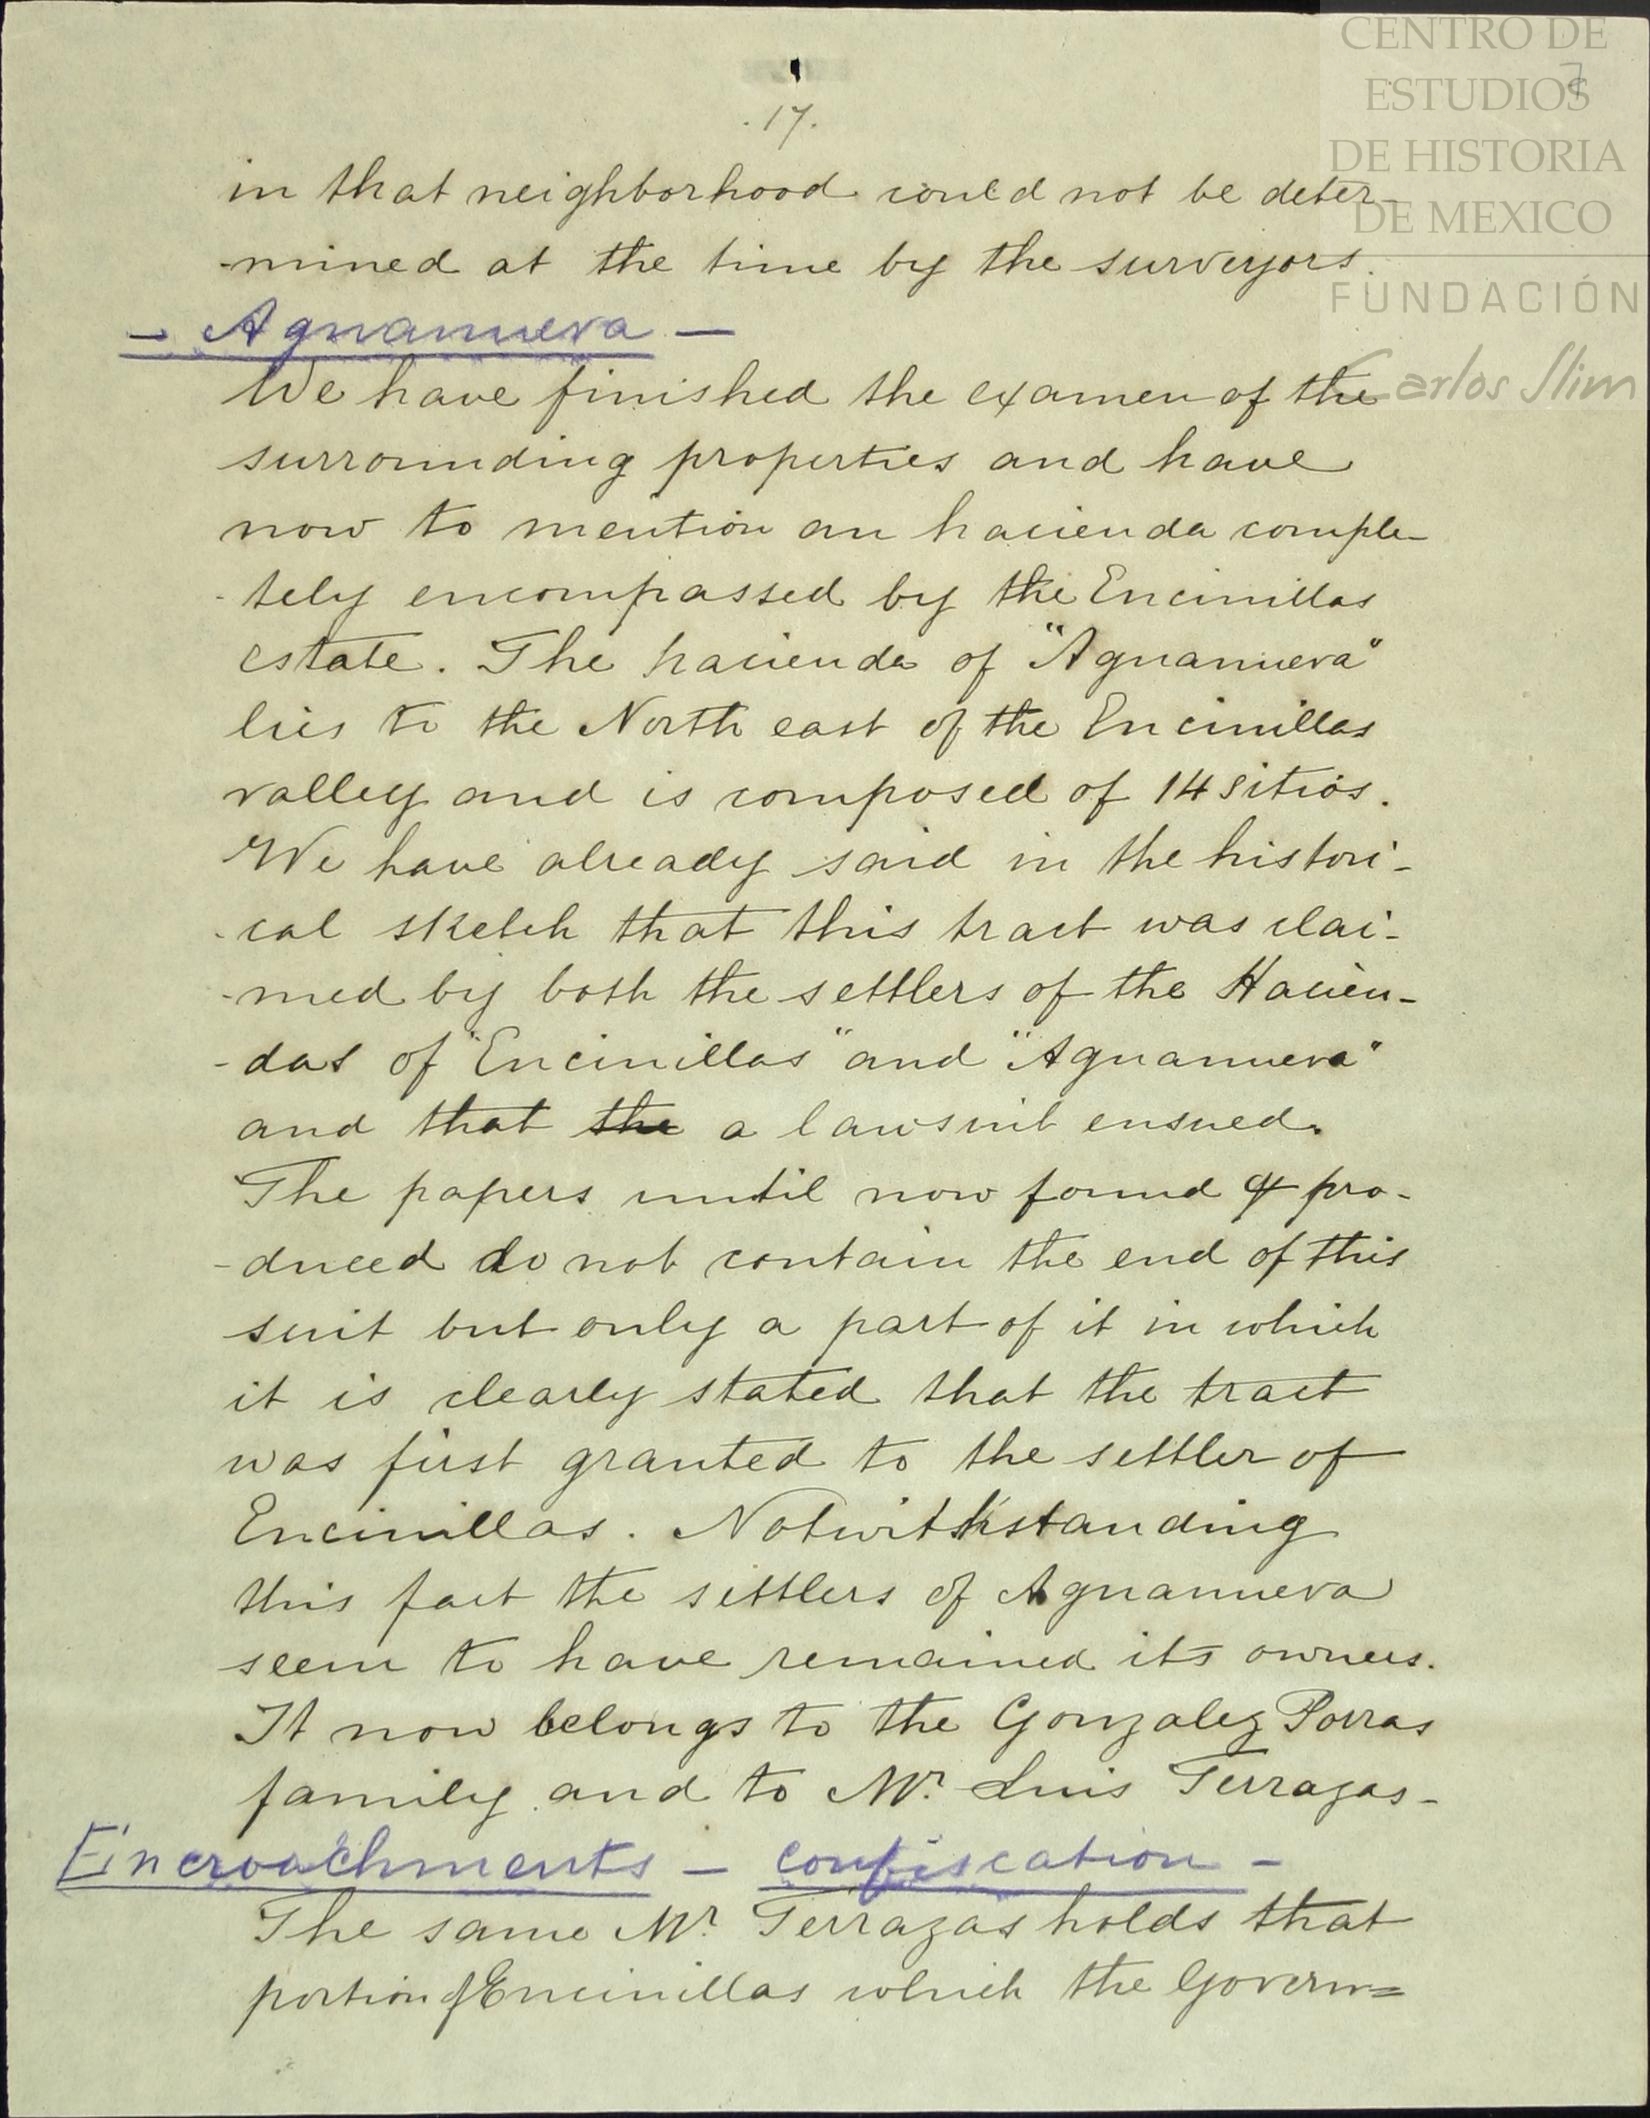 CENTRO DE
ESTUDIOS
DE HISTORIA
DE MEXICO
FUNDACIÓN
Carlos Slim
7
.17.
in that neighborhood could not be deter-
-mined at the time by the surveyors.
- Aguanueva -
We have finished the examen of the
surrounding properties and have
now to mention an hacienda comple-
-tely encompassed by the Encinillas
estate. The hacienda of "Aguanueva"
lies to the North east of the Encinillas
valley and is composed of 14 sitios.
We have already said in the histori-
-cal sketch that this tract was clai-
-med by both the settlers of the Hacien-
-das of "Encinillas" and "Aguanueva"
and that the a lawsuit ensued.
The papers until now found & pro-
-duced do not contain the end of this
suit but only a part of it in which
it is clearly stated that the tract
was first granted to the settler of
Encinillas. Notwithstanding
this fact the settlers of Aguanueva
seem to have remained its owners.
It now belongs to the Gonzalez Porras
family and to Mr. Luis Terrazas-
Encroachments - confiscation -
The same Mr. Terrazas holds that
portion of Encinillas which the Govern=